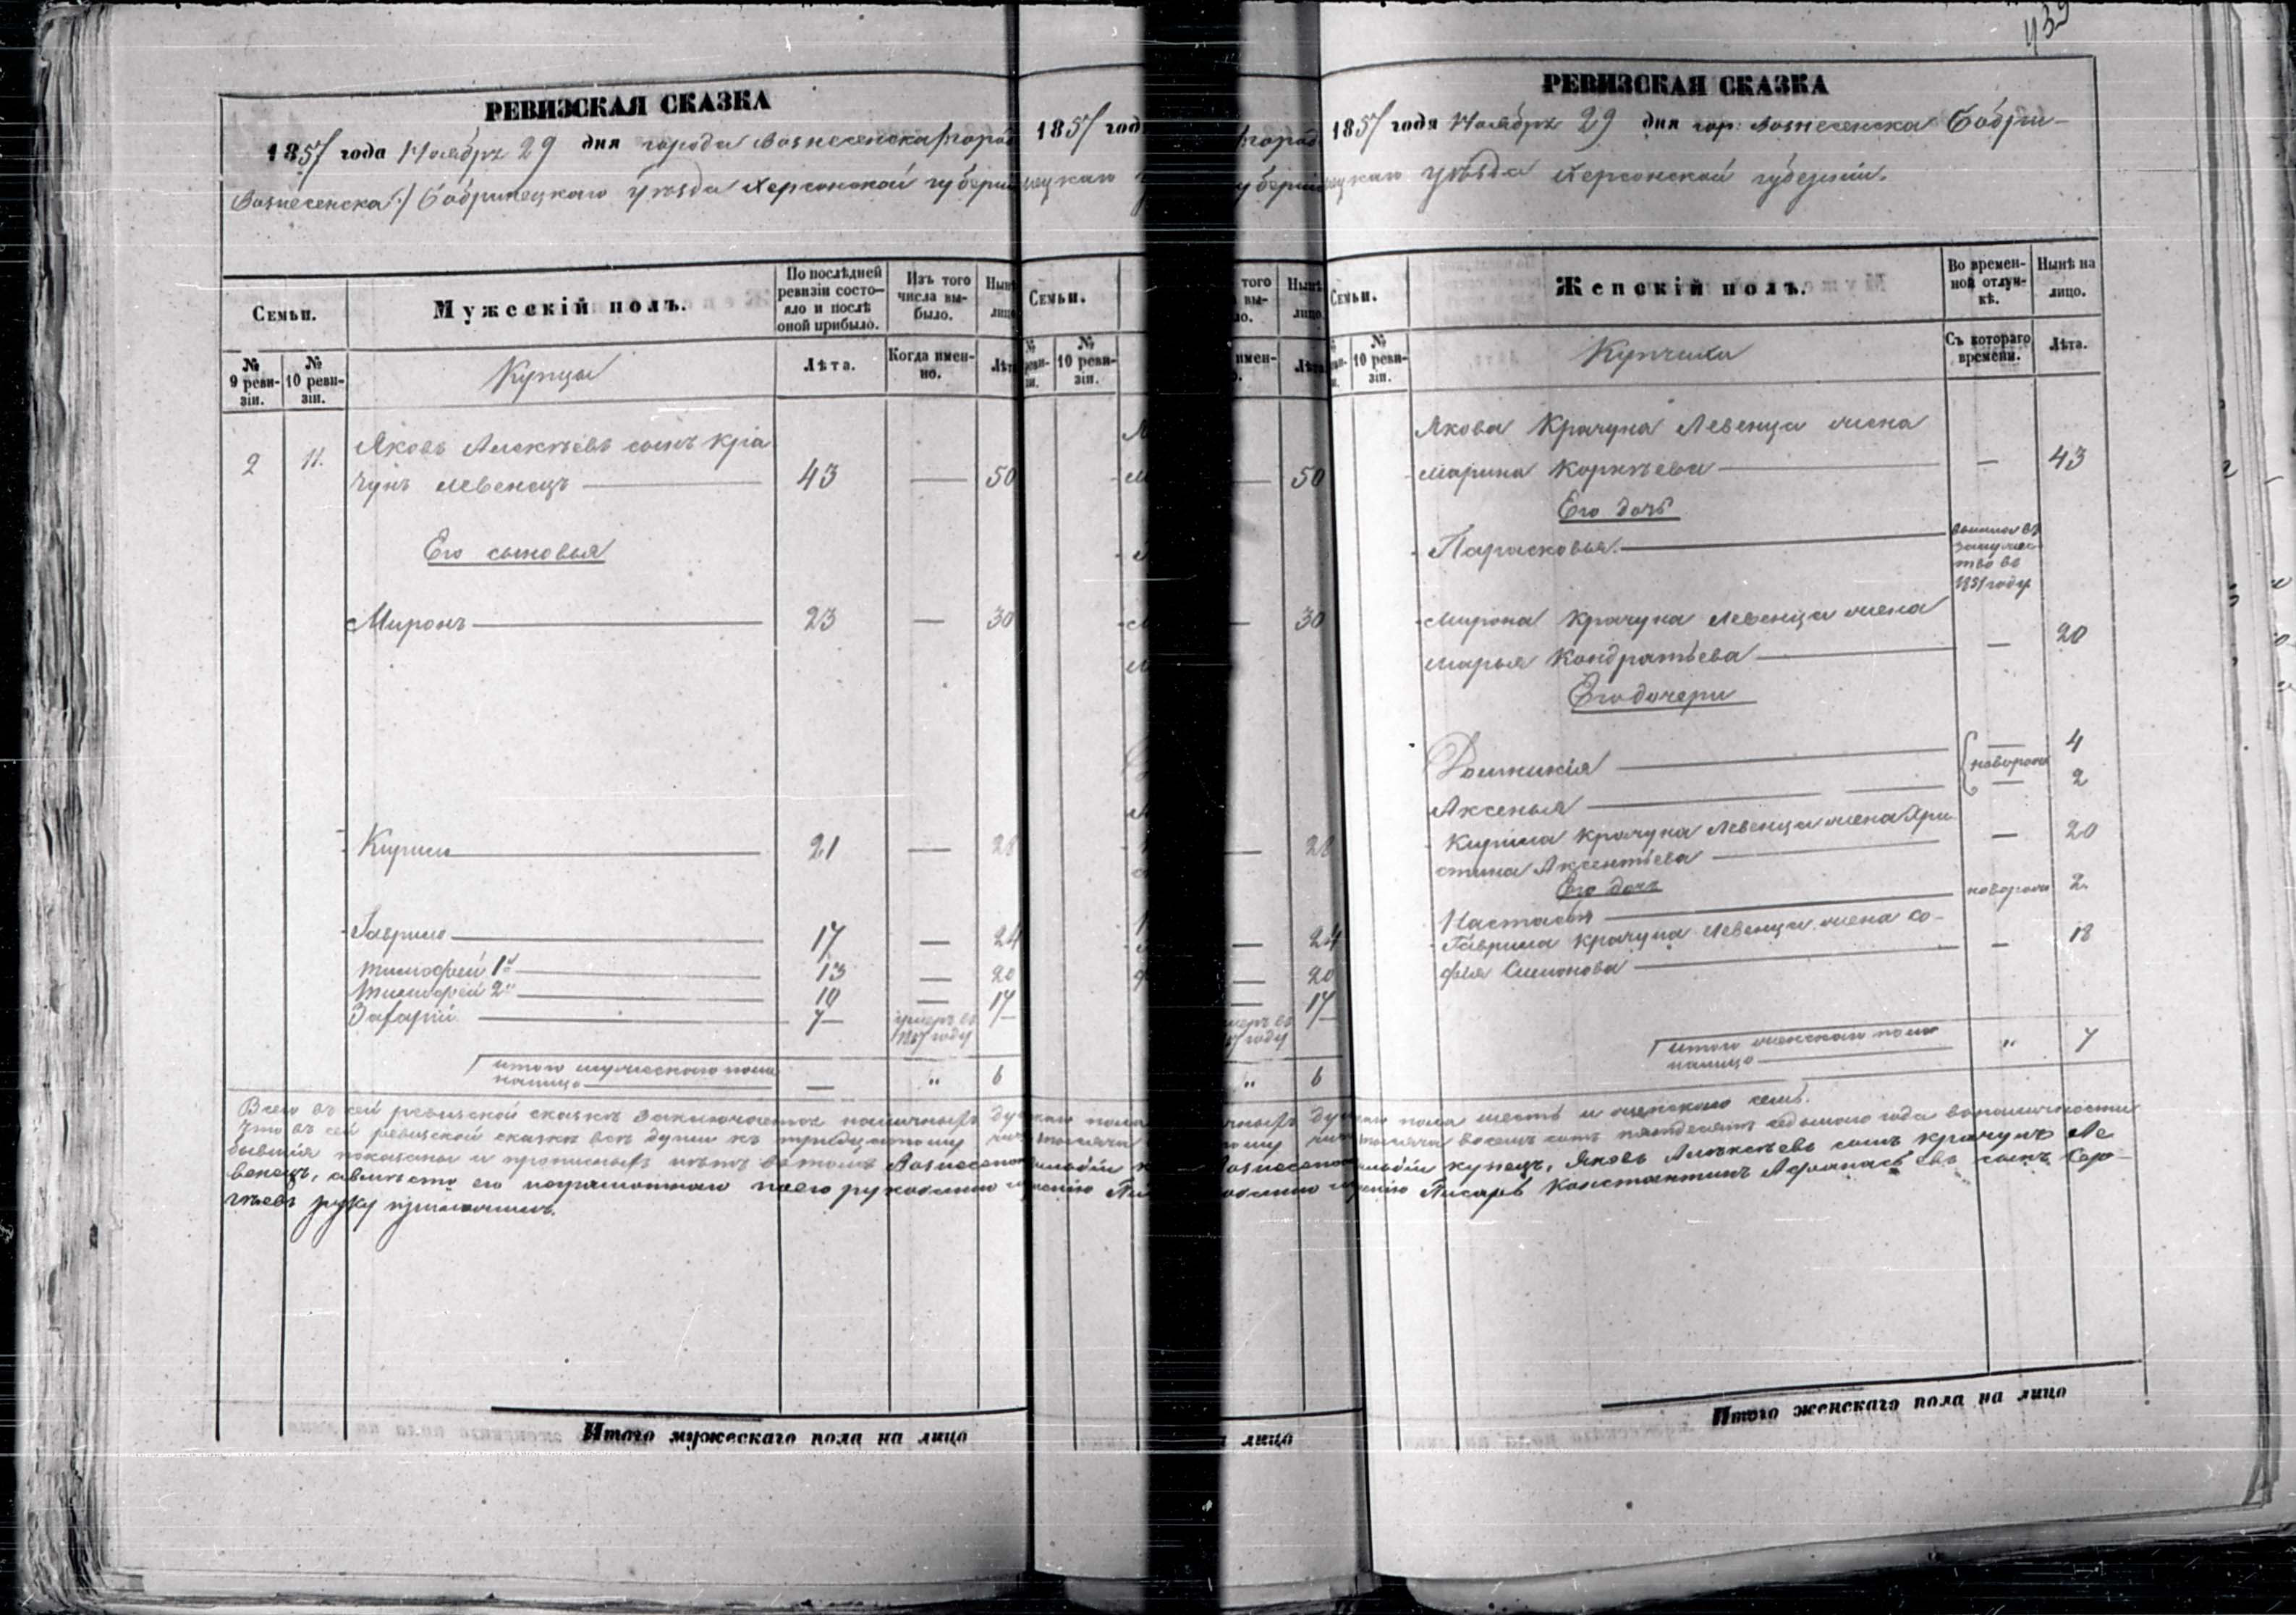 439
РЕВИЗСКАЯ СКАЗКА
1857 года Ноября 29 дня города Вознесенска /: город
Вознесенска :/ Бобринецкаго уѣзда Херсонской губерніи
Семьи.
Мужескій полъ.
По послѣдней ревизіи состояло и послѣ оной прибыло.
Изъ того числа выбыло.
Нынѣ лицо
№ 9 ревизіи.
№ 10 ревизіи.
Купцы
Лѣта.
Когда именно.
Лѣта
2 11. Яковъ Алексѣевъ сынъ Кра
чунъ Левенецъ — 43 — 50
Его сыновья
Миронъ — 23 — 30
Кирила — 21 — 28
Гаврило — 17 — 24
Тимофей 1й — 13 — 20
Тимофей 2й — 10 — 17
Захарій — 7 — умеръ въ 1857 году —
Итого мужескаго пола
налицо — — " 6
Всего въ сей ревизской сказкѣ заключается наличныхъ душ
Что въ сей ревизской сказкѣ всѣ души къ тридцатому
бывшія показаны и прописныхъ нѣтъ въ томъ Вознесен
венецъ, а вмѣсто его неграмотнаго по его рукоданно
гѣевъ руку приложилъ.
Итого мужескаго пола на лицо
1857 год
Семьи.
№ 10 ревизіи.
РЕВИЗСКАЯ СКАЗКА
1857 года Ноября 29 дня гор: Вознесенска Бобри-
нецкаго уѣзда Херсонской губерніи.
Семьи.
Женскій полъ.
Во временной отлучкѣ.
Нынѣ на лицо.
№ 10 ревизіи.
Купчихи
Съ котораго времени.
Лѣта.
Якова Крачуна Левенца жена
Марина Корнѣева — — 43
Его дочь
Парасковья. — вышла въ замужество въ 1851 году
Мирона Крачуна Левенца жена
Марья Кондратьева — — 20
Его дочери
Домникія — новорож 4
Аксенья — — 2
Кирила Крачуна Левенца жена Хри
стина Аксентьева — — 20
Его дочь
Настасья — новорож 2.
Гаврила Крачуна Левенца жена Со-
фья Симонова — — 18
Итого женскаго пола
налицо — " 7
каго пола шесть и женскаго семь.
тысяча восемь сотъ пятьдесятъ седьмаго года в наличности
купецъ, Яковъ Алексѣевъ сынъ Крачунъ Ле
Писарь Константинъ Афанасьевъ сынъ Сер-
Итого женскаго пола на лицо